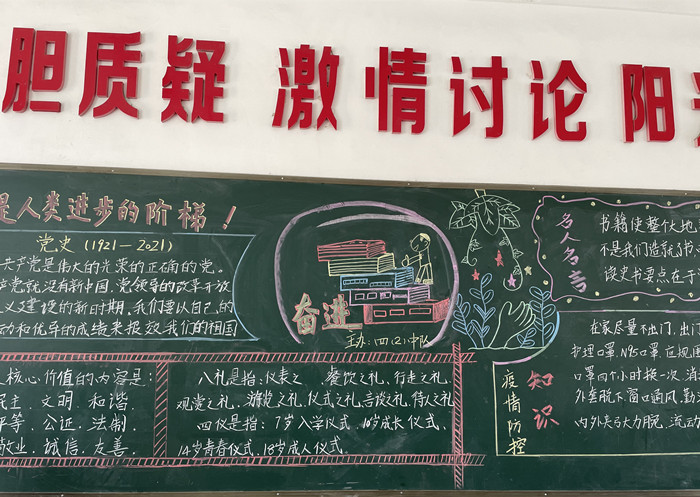 胆质疑 激情讨论 阳
是人类进步的阶梯！
党史（1921—2021）
共产党是伟大的光荣的正确的党。
产党就没有新中国，党领导的改革开放
义建设的新时期，我们要以自己的
动和优异的成绩来报效我们的祖国
奋进
主办：四（2）中队
核心价值的内容是：
民主、文明、和谐
平等、公证、法制
敬业、诚信、友善、
八礼是指：仪表之 、餐饮之礼、行走之礼、
观赏之礼、游览之礼、仪式之礼、言谈之礼、待人之礼
四仪是指：7岁入学仪式、10岁成长仪式、
14岁青春仪式、18岁成人仪式。
名人名言
书籍使整个地
不是我们造就了历
读史书要点在于
疫情防控
知识
在家尽量不出门，出门
护理口罩，N95口罩，应规
口罩四个小时换一次，消
外套脱下窗口通风，勤
内外夹弓大力腕，流动